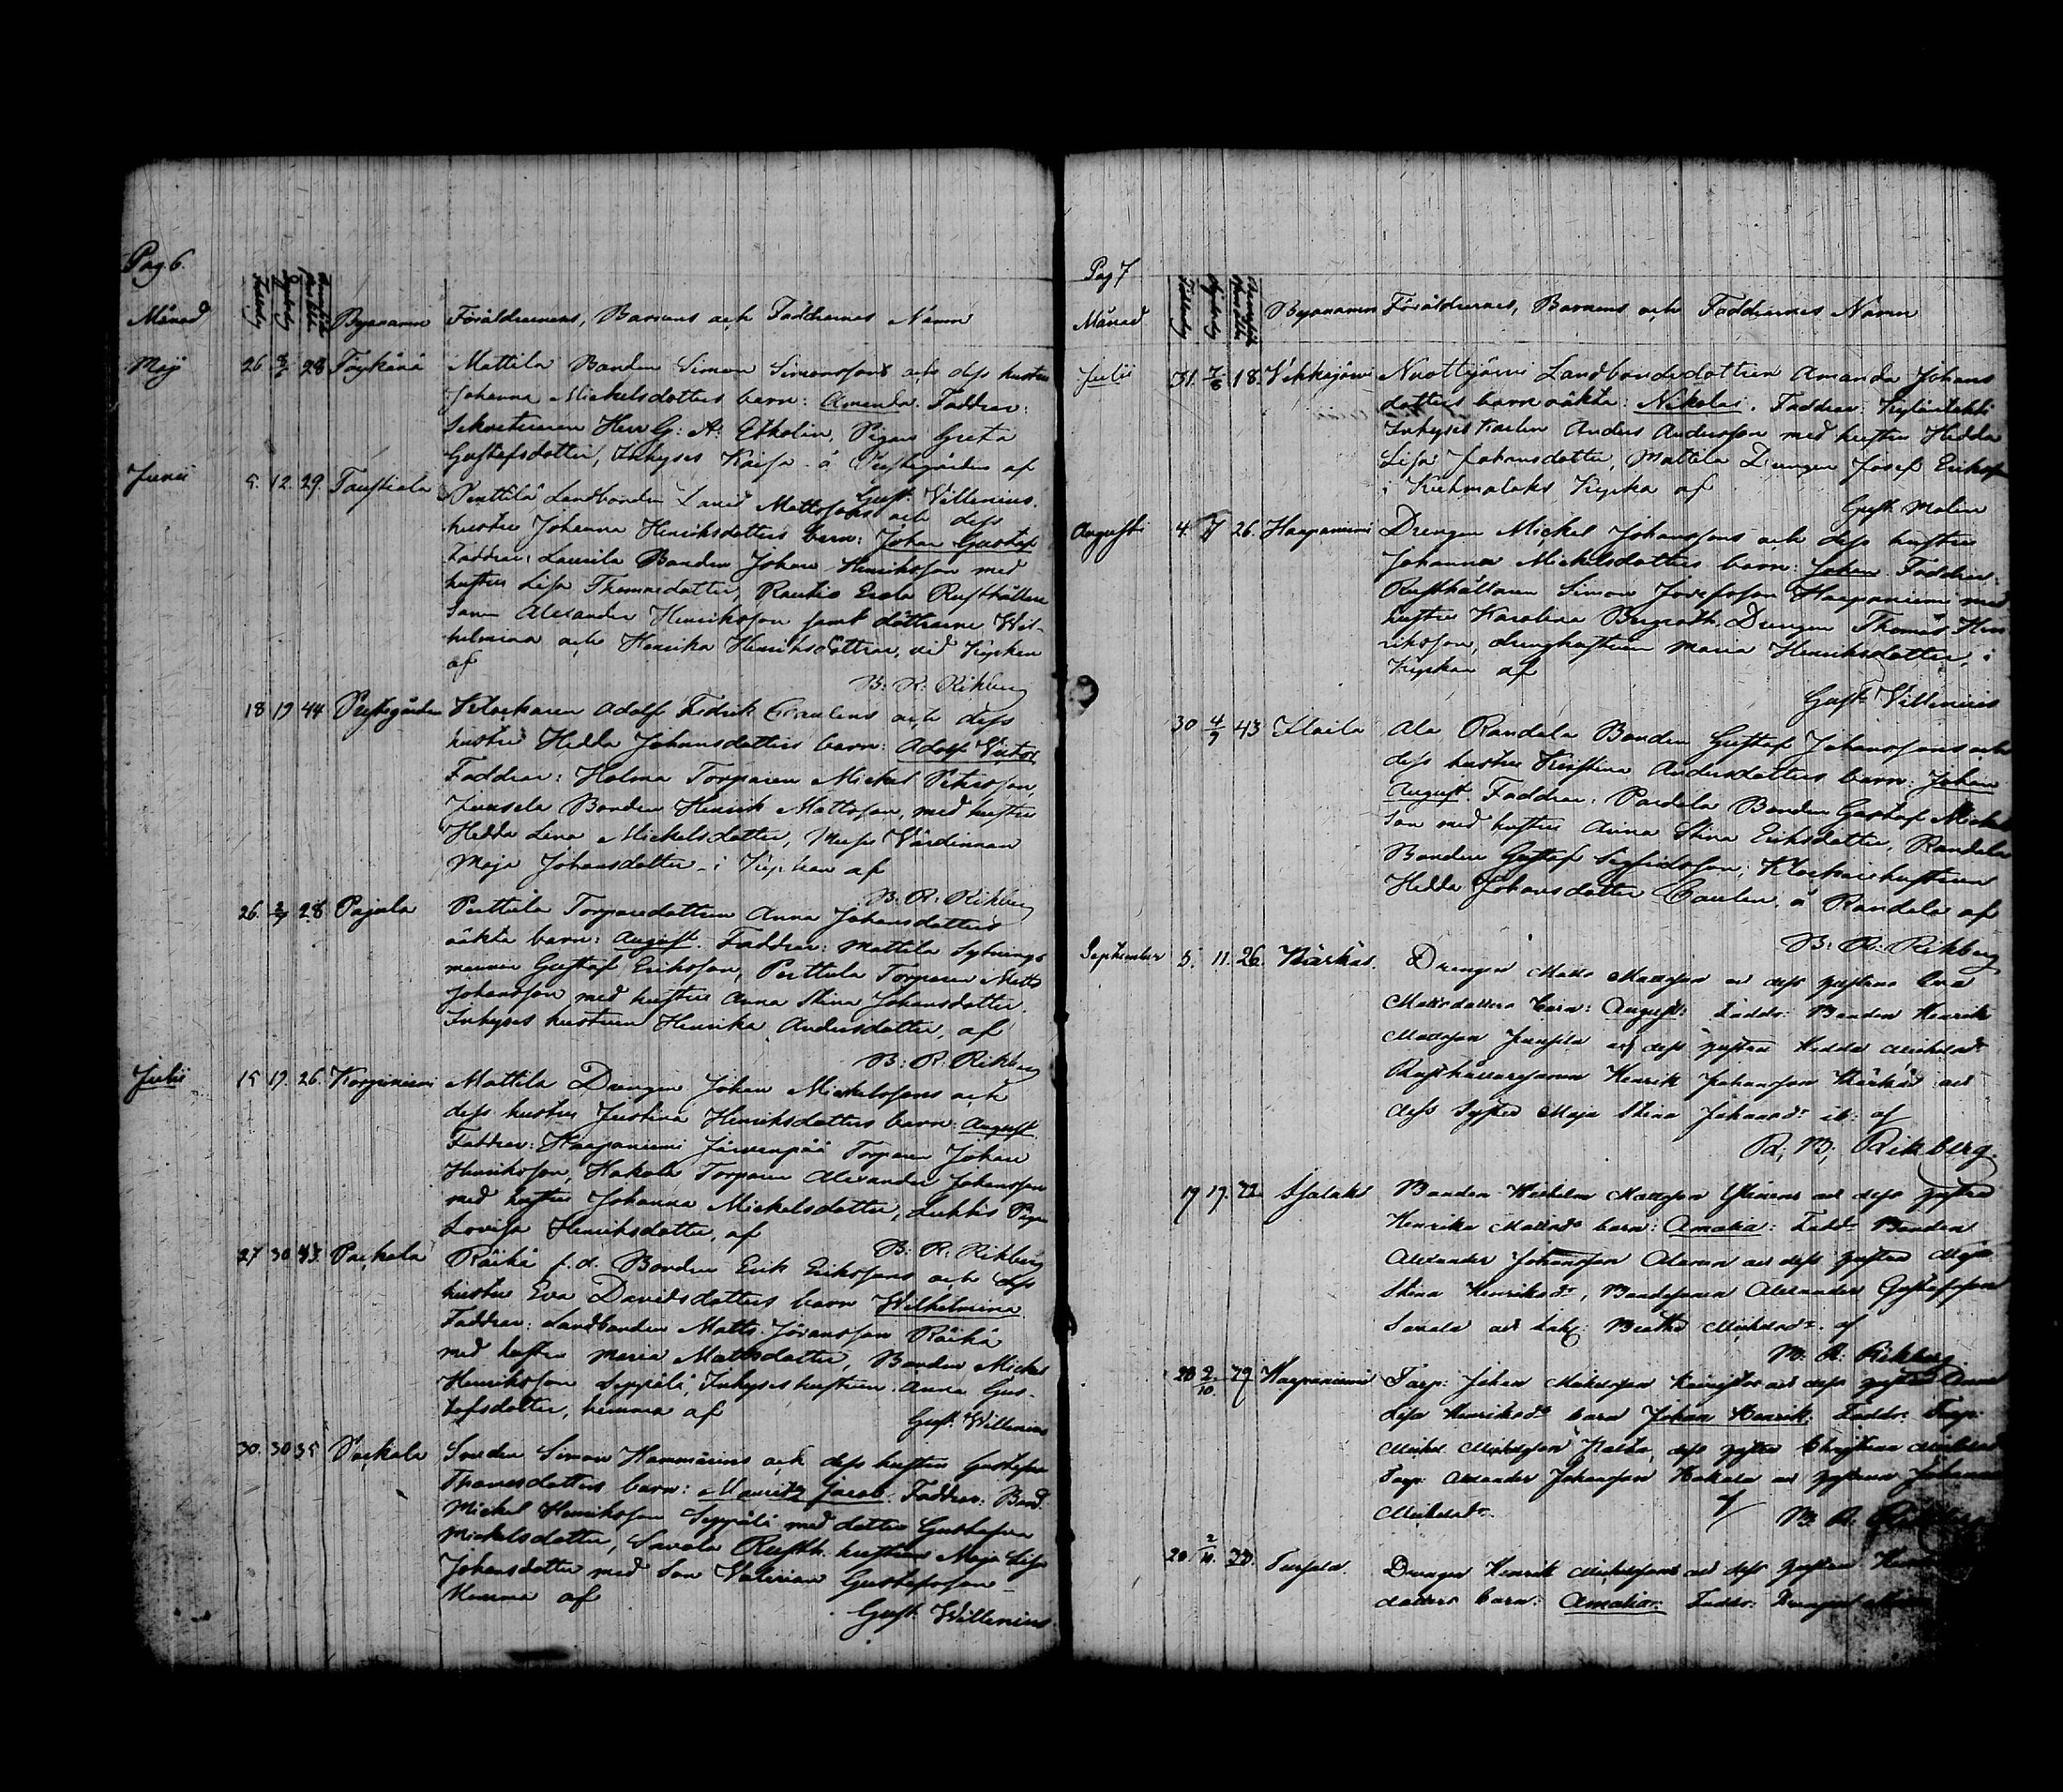 Pag 6.
Månad Födelsedag Dopdag Byanamn Föräldrarnas, Barnens och Faddrarnas Namn
Maji 26. 28 Töykänä Mattila Bonden Simon Simonssons och dess hustru
Johanna Mickelsdotters barn: Amanda. Faddrar:
Sekreteraren Herr G: A: Ekholm, Pigan Greta
Gustafsdotter, Inhyses Kaisa å Prestgården af
Gust. Villenius.
Junii 5. 12. 29. Taustiala Penttilä Landbonden David Mattssons och dess
hustru Johanna Henriksdotters barn: Johan Gustaf
Faddrar: Laurila Bonden Johan Henriksson med
hustru Lisa Thomasdotter, Rautio Eerola Rusthållare
Sonen Alexander Henriksson samt döttrarne Wil-
helmina och Henrika Henriksdöttrar, vid Kyrkan
af
B: R: Rikberg
18 19 44 Prestgården Klockaren Adolf Fredrik Caulens och dess
hustru Hedda Johansdotters barn: Adolf Victor
Faddrar: Holma Torparen Mickel Petersson,
Junsela Bonden Henrik Mattsson, med hustru
Hedda Lena Mickelsdotter, Värdinnan
Maja Johansdotter i Kyrkan af
B: R: Rikberg
26. 28 Pajula Perttula Torparedottren Anna Johansdotters
oäkta barn: August. Faddrar: Mattila Sytnings
mannen Gustaf Eriksson, Perttula Torparen Matts
Johansson med hustru Anna Stina Johansdotter.
Inhyses hustrun Henrika Andersdotter, af
B: R: Rikberg
Julii 15 17. 26. Korpiniemi Mattila Drengen Johan Mickelssons och
dess hustru Justina Henriksdotters barn: August.
Faddrar: Haapaniemi Järvenpää Torparen Johan
Henriksson, Hakala Torparen Alexander Johansson
med hustru Johanna Mickelsdotter, Lukkis Pigan
Lovisa Henriksdotter, af
B: R: Rikberg
27 30 43. Porkala Räikä f.d. Bonden Erik Erikssons och dess
hustru Eva Davidsdotters barn Wilhelmina
Faddrar: Landbonden Matts Göransson Räikä
med hustru Maria Mattsdotter, Bonden Mickel
Henriksson Seppälä, Inhyses hustrun Anna Gus-
tafsdotter, hemma af
Gust. Villenius
30. 30 35 Porkala Smeden Simon Hammarins och dess hustru Gustafva
Thomasdotters barn: Mauritz Jacob. Faddrar: Bond.
Mickel Henriksson Seppälä med dotter Gustafva
Mickelsdotter, Savola Rusth. hustrun Maja Lisa
Johansdotter med Son Valerian Gustafsson
Hemma af
Gust. Willenius
Pag 7
Månad Födelsedag Dopdag Byanamn Föräldrarnes, Barnens och Faddrarnes Namn
Julii 31. 7/8 18. Vekkajärvi Nuottijärvi Landbondedottren Amanda Johans
dotters barn oäkta: Nikolai. Faddrar:
Inhyses Karlen Anders Andersson med hustru Hedda
Lisa Johansdotter, Mattila Drengen Josef Eriksson
i Kuhmalaks Kyrka af
Gust. Malin
Augusti 4. 7 26. Haapaniemi Drengen Mickel Johanssons och dess hustru
Johanna Mickelsdotters barn: Johan Faddrar:
Rusthållaren Simon Josefsson Haapaniemi med
hustru Karolina Bergroth, Drengen Thomas Hen
riksson, drenghustrun Maria Henriksdotter, i
Kyrkan af
Gust. Villenius
30 4/9 43 Ilaila Ala Randala Bonden Gustaf Johanssons och
dess hustru Kristina Andersdotters barn: Johan
August. Faddrar: Pardala Bonden Gustaf Mickels
son med hustru Anna Stina Eriksdotter, Randala
Bonden Gustaf Sigfridsson, Klockarehustrun
Hedda Johansdotter Caulen, å Randala af
B: R: Rikberg
September 5. 11. 26. Kärkäs. Drengen Matts Mattsson och dess hustru Eva
Mattsdotters barn: August: Faddr: Bonden Henrik
Mattsson Junsila och dess hustru Hedda Michelsdr
Rusthållaresonen Henrik Johansson Kärkäs och
dess Syster Maja Stina Johansdr ib: af
R: B: Rikberg.
17 19. 22 Sjalaks Bonden Wilhelm Mattsson och dess hustru
Henrika Mattsdr barn: Amalia: Faddr Bonden
Alexander Johansson Alanen och dess hustru Maja
Stina Henriksdr, Bondesonen Alexander Gustafsson
Savala och Beatha Michelsdr. af
B. R. Rikberg
28 2/10 29 Haapaniemi Torp: Johan Mickelsson och dess hustru Anna
Lisa Henriksdr barn Johan Henrik: Faddr: Torp:
Mickel Mickelsson dess hustru Christina Mickelsdr
Torp: Alexander Johansson Hakala och hustrun Johanna
Mickelsdr. af B. R. Rikberg
20 2/10. Drengen Henrik Mickelssons och dess hustru
dotters barn: Amalia: Faddr: Drengen